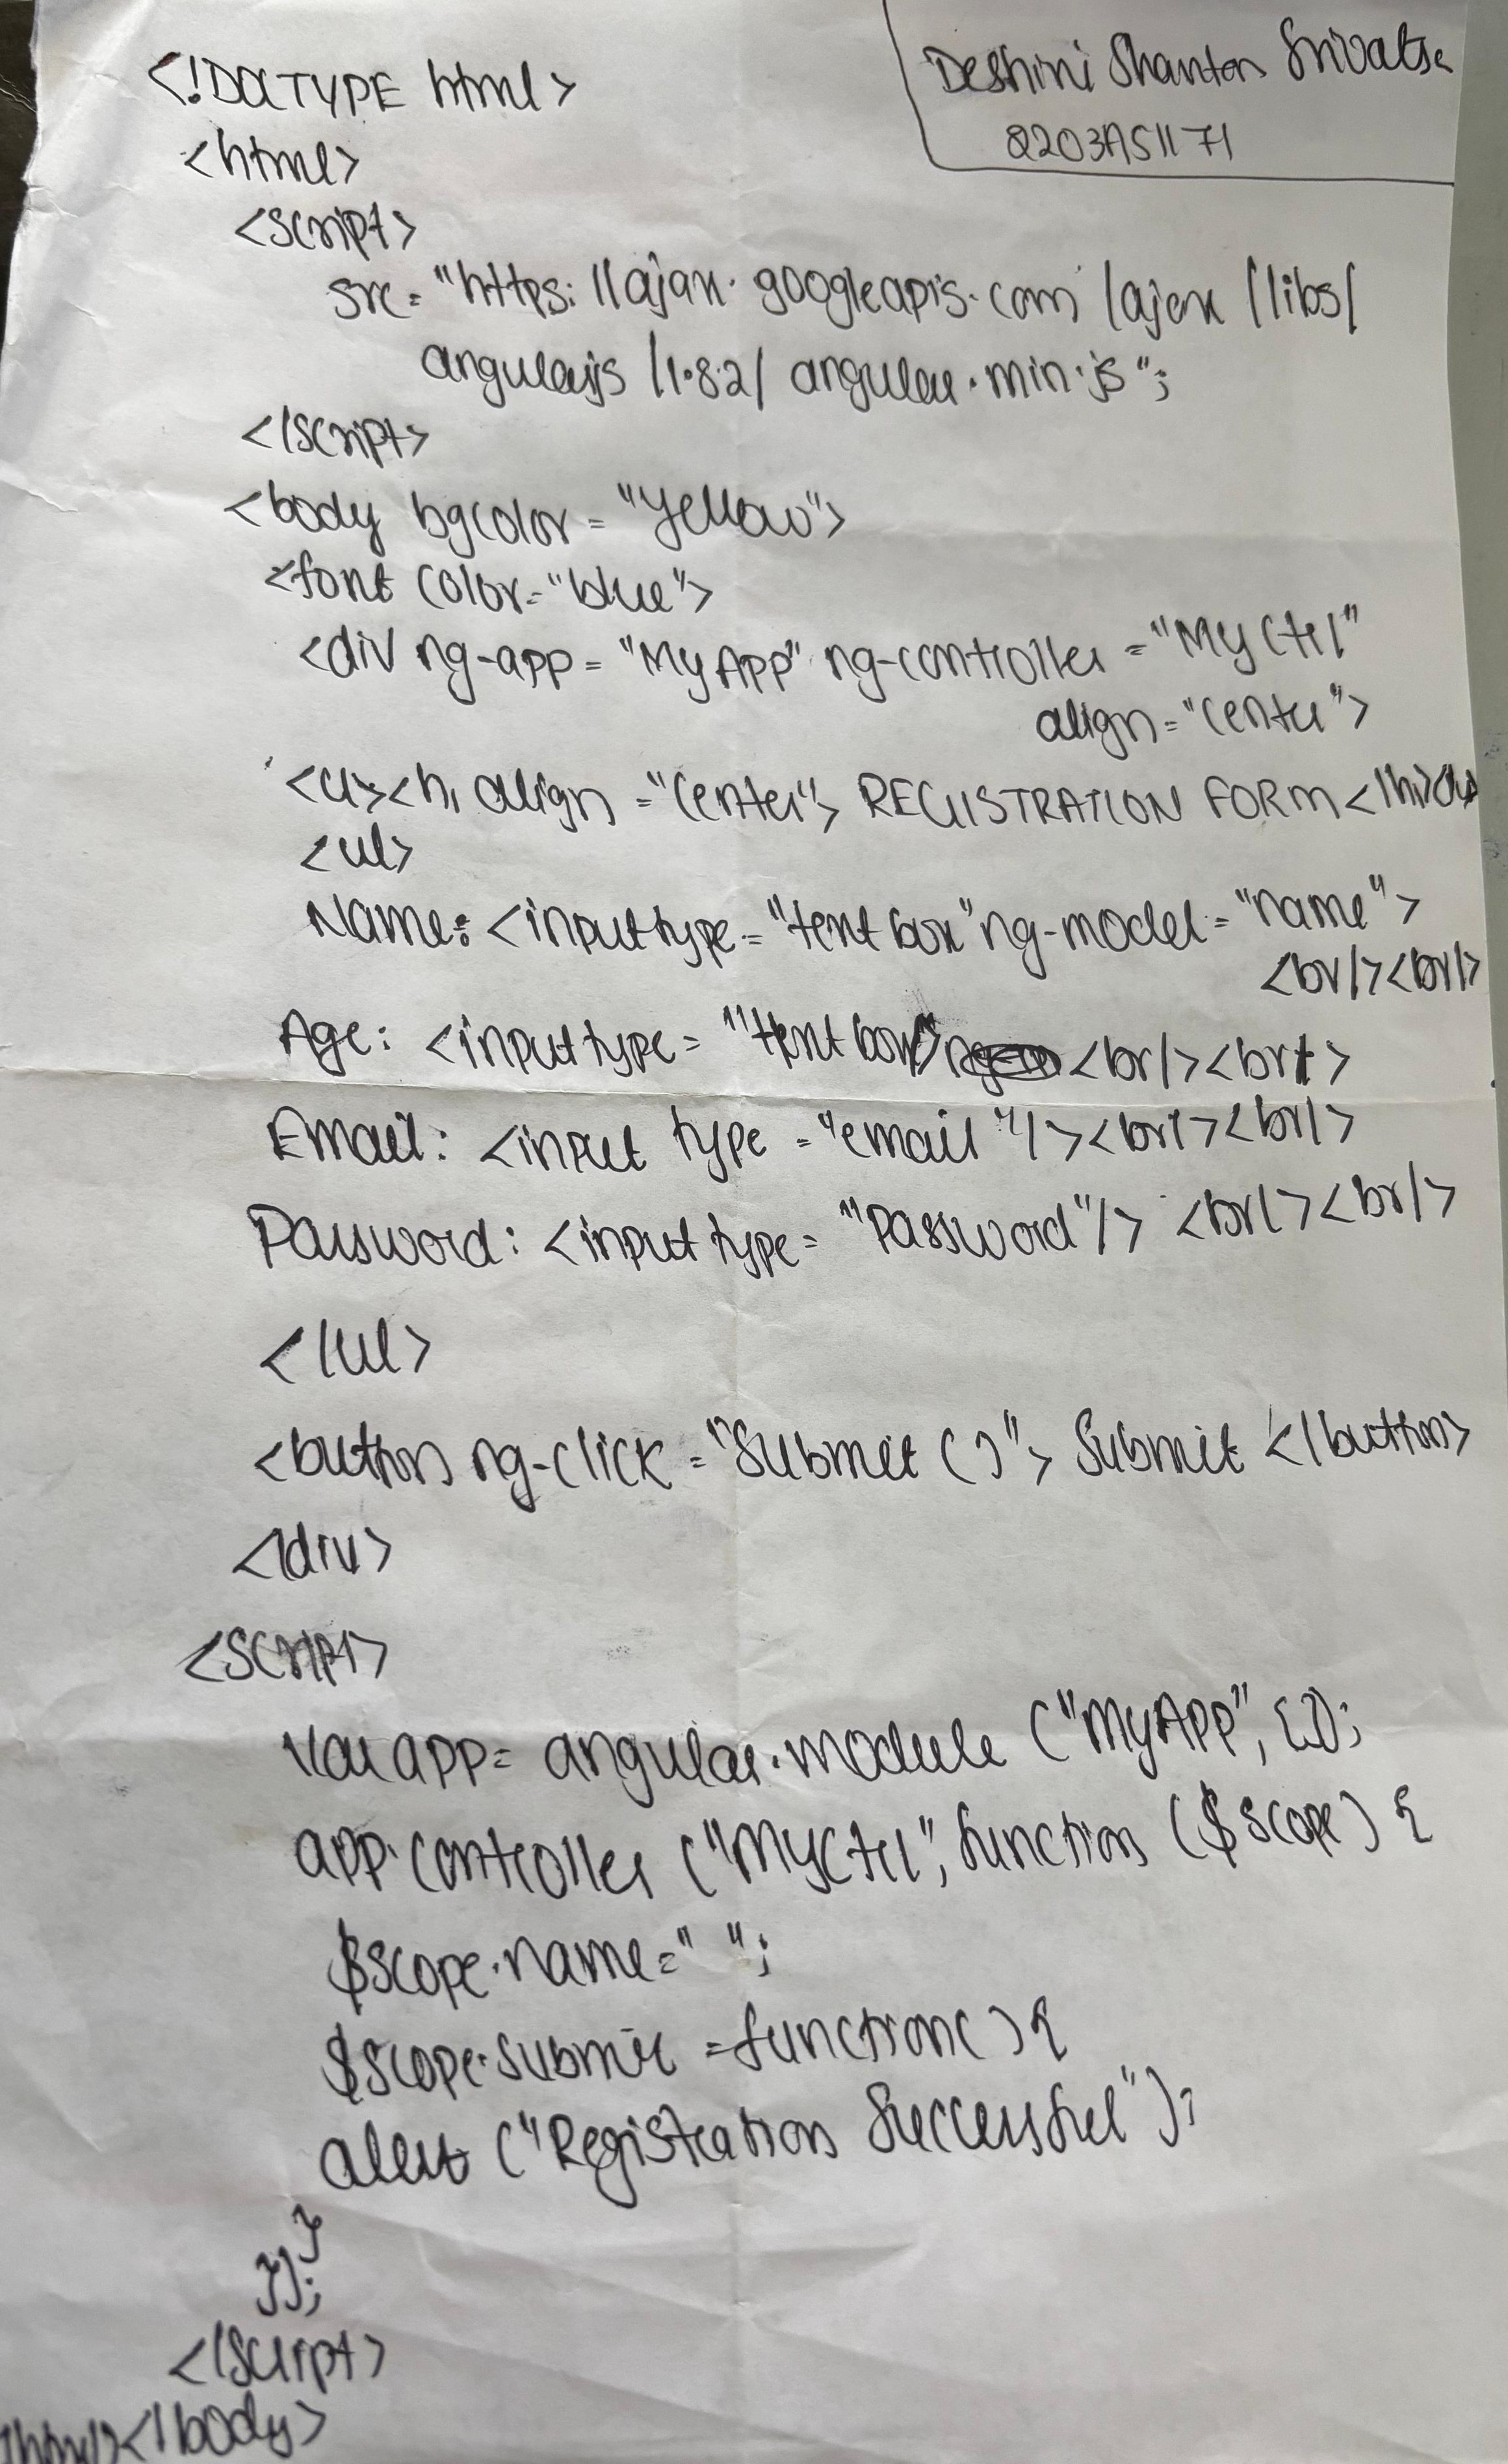 Deshini Shanton Srivatsa
2203A51171
<!DOCTYPE html>
<html>
<script>
src= "https://ajax.googleapis.com/ajax/libs/
angularjs/1.8.2/angular.min.js";
</script>
<body bgcolor="yellow">
<font color="blue">
<div ng-app="MyApp" ng-controller="MyCtrl"
align="center">
<u><h1 align="center"> REGISTRATION FORM </h1></u>
<ul>
Name: <input type="text box" ng-model="name">
<br/><br/>
Age: <input type="text box"> <br/><br/>
Email: <input type="email"/><br/><br/>
Password: <input type="Password"/> <br/><br/>
</ul>
<button ng-click="Submit()"> Submit </button>
</div>
<script>
var app= angular.module ("MyApp", []);
app.controller ("MyCtrl", function ($scope) {
$scope.name=" ";
$scope.submit =function() {
alert ("Registration Successful");
}
});
</script>
</html></body>